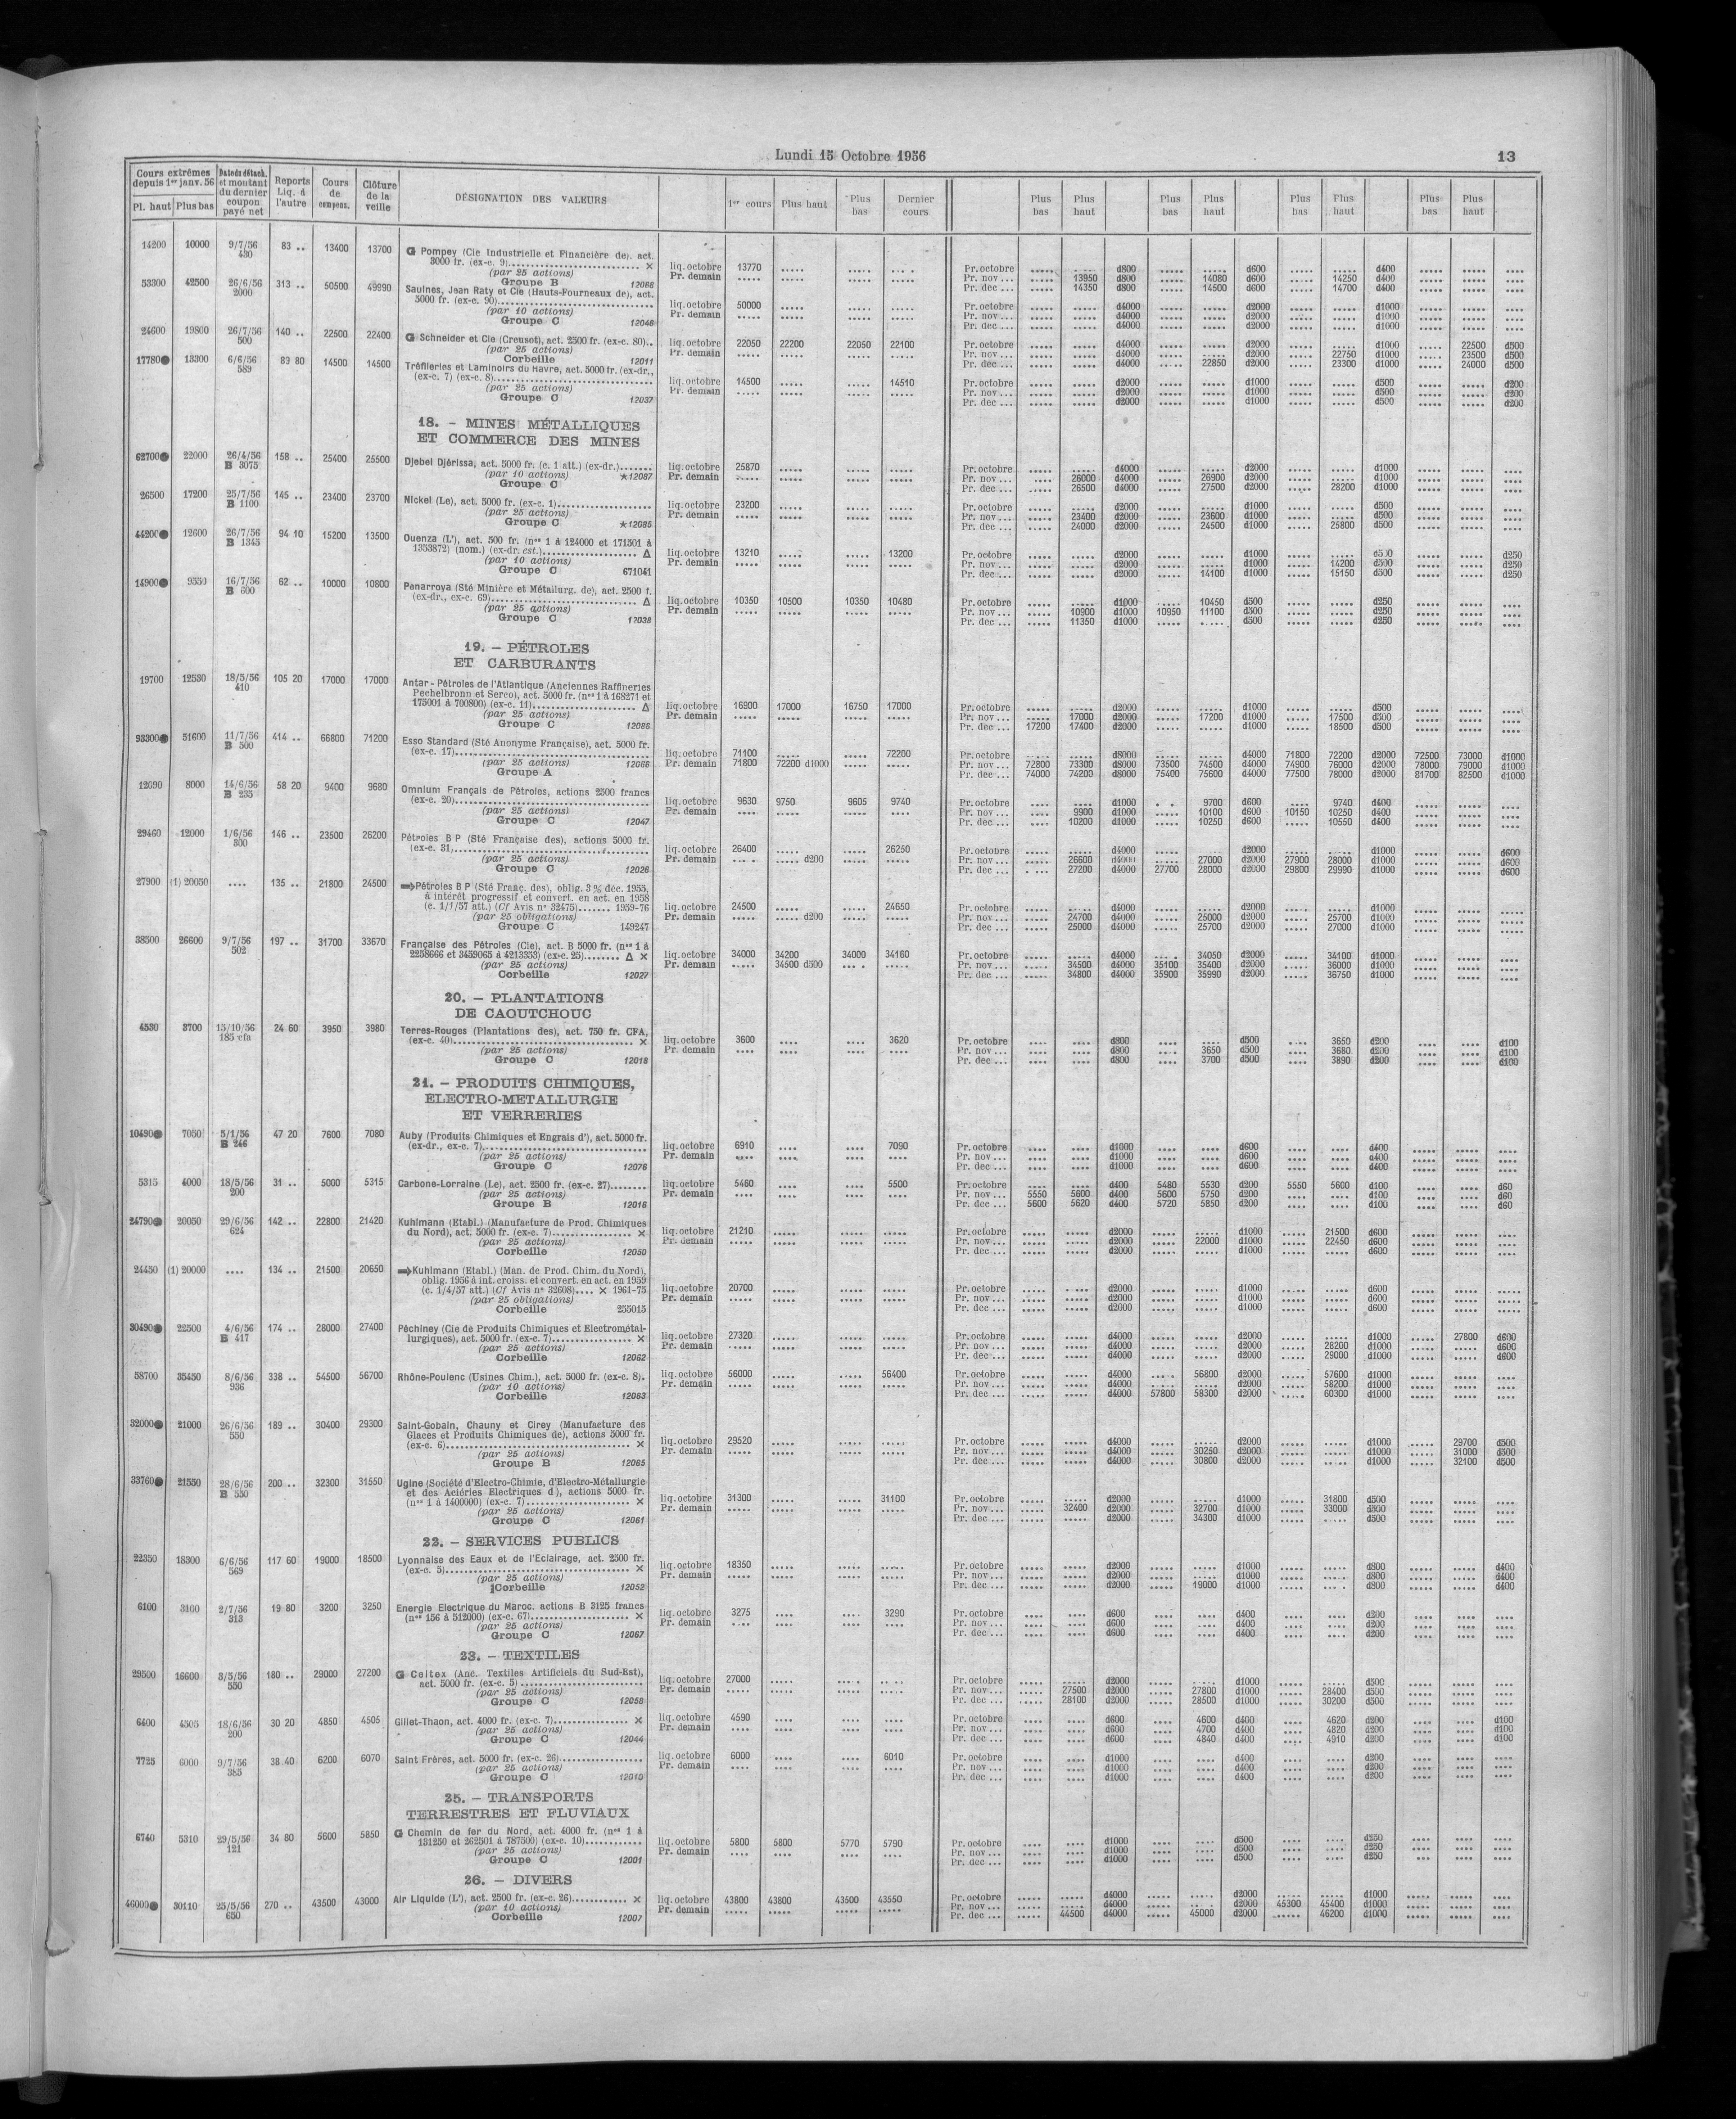 Lundi 15 Octobre 1956
13
Cours extrêmes depuis 1er janv. 56
Pl. haut Plus bas
Date de détach. et montant du dernier coupon payé net
Reports Liq. à l'autre
Cours de compens.
Clôture de la veille
DÉSIGNATION DES VALEURS
1er cours Plus haut Plus bas Dernier cours
Plus bas Plus haut Plus bas Plus haut Plus bas Plus haut Plus bas Plus haut
14200 10000 9/7/56 430 83 .. 13400 13700
G Pompey (Cie Industrielle et Financière de), act.
3000 fr. (ex-c. 9) ×
(par 25 actions)
Groupe B 12066
liq. octobre 13770
Pr. demain
Pr. octobre d800 d600 d400
Pr. nov ... 13950 d800 14080 d600 14250 d400
Pr. dec ... 14350 d800 14500 d600 14700 d400
53300 42500 26/6/56 2000 313 .. 50500 49990
Saulnes, Jean Raty et Cie (Hauts-Fourneaux de), act.
5000 fr. (ex-c. 90)
(par 10 actions)
Groupe C 12046
liq. octobre 50000
Pr. demain
Pr. octobre d4000 d2000 d1000
Pr. nov ... d4000 d2000 d1000
Pr. dec ... d4000 d2000 d1000
24600 19800 26/7/56 500 140 .. 22500 22400
G Schneider et Cie (Creusot), act. 2500 fr. (ex-c. 80)..
(par 25 actions)
Corbeille 12011
liq. octobre 22050 22200 22050 22100
Pr. demain
Pr. octobre d4000 d2000 d1000 22500 d500
Pr. nov ... d4000 d2000 22750 d1000 23500 d500
Pr. dec ... d4000 22850 d2000 23300 d1000 24000 d500
17780● 13300 6/6/56 589 83 80 14500 14500
Tréfileries et Laminoirs du Havre, act. 5000 fr. (ex-dr.,
(ex-c. 7) (ex-c. 8)
(par 25 actions)
Groupe C 12037
liq. octobre 14500 14510
Pr. demain
Pr. octobre d2000 d1000 d500 d200
Pr. nov ... d2000 d1000 d500 d200
Pr. dec ... d2000 d1000 d500 d200
18. — MINES MÉTALLIQUES
ET COMMERCE DES MINES
62700● 22000 26/4/56 B 3075 158 .. 25400 25500
Djebel Djérissa, act. 5000 fr. (c. 1 att.) (ex-dr.)
(par 10 actions) ★12087
Groupe C
liq. octobre 25870
Pr. demain
Pr. octobre d4000 d2000 d1000
Pr. nov ... 26000 d4000 26900 d2000 d1000
Pr. dec ... 26500 d4000 27500 d2000 28200 d1000
26500 17200 25/7/56 B 1100 145 .. 23400 23700
Nickel (Le), act. 5000 fr. (ex-c. 1)
(par 25 actions)
Groupe C ★12085
liq. octobre 23200
Pr. demain
Pr. octobre d2000 d1000 d500
Pr. nov ... 23400 d2000 23600 d1000 d500
Pr. dec ... 24000 d2000 24500 d1000 25800 d500
44200● 12600 26/7/56 B 1345 94 10 15200 13500
Ouenza (L'), act. 500 fr. (nos 1 à 124000 et 171501 à
1353872) (nom.) (ex-dr. est.) Δ
(par 10 actions)
Groupe C 671041
liq. octobre 13210 13200
Pr. demain
Pr. octobre d2000 d1000 d500 d250
Pr. nov ... d2000 d1000 14200 d500 d250
Pr. dec ... d2000 14100 d1000 15150 d500 d250
14900● 9550 16/7/56 B 600 62 .. 10000 10800
Penarroya (Sté Minière et Métallurg. de), act. 2500 f.
(ex-dr., ex-c. 69) Δ
(par 25 actions)
Groupe C 12038
liq. octobre 10350 10500 10350 10480
Pr. demain
Pr. octobre d1000 10450 d500 d250
Pr. nov ... 10900 d1000 10950 11100 d500 d250
Pr. dec ... 11350 d1000 d500 d250
19. — PÉTROLES
ET CARBURANTS
19700 12530 18/5/56 410 105 20 17000 17000
Antar - Pétroles de l'Atlantique (Anciennes Raffineries
Pechelbronn et Serco), act. 5000 fr. (nos 1 à 168271 et
175001 à 700800) (ex-c. 11) Δ
(par 25 actions)
Groupe C 12086
liq. octobre 16900 17000 16750 17000
Pr. demain
Pr. octobre d2000 d1000 d500
Pr. nov ... 17000 d2000 17200 d1000 17500 d500
Pr. dec ... 17200 17400 d2000 d1000 18500 d500
93300● 51600 11/7/56 B 500 414 .. 66800 71200
Esso Standard (Sté Anonyme Française), act. 5000 fr.
(ex-c. 17)
(par 25 actions) 12066
Groupe A
liq. octobre 71100 72200
Pr. demain 71800 72200 d1000
Pr. octobre d8000 d4000 71800 72200 d2000 72500 73000 d1000
Pr. nov ... 72800 73300 d8000 73500 74500 d4000 74900 76000 d2000 78000 79000 d1000
Pr. dec ... 74000 74200 d8000 75400 75600 d4000 77500 78000 d2000 81700 82500 d1000
12690 8000 14/6/56 B 235 58 20 9400 9680
Omnium Français de Pétroles, actions 2500 francs
(ex-c. 20)
(par 25 actions)
Groupe C 12047
liq. octobre 9630 9750 9605 9740
Pr. demain
Pr. octobre d1000 9700 d600 9740 d400
Pr. nov ... 9900 d1000 10100 d600 10150 10250 d400
Pr. dec ... 10200 d1000 10250 d600 10550 d400
29460 12000 1/6/56 300 146 .. 23500 26200
Pétroles B P (Sté Française des), actions 5000 fr.
(ex-c. 31)
(par 25 actions)
Groupe C 12026
liq. octobre 26400 26250
Pr. demain d200
Pr. octobre d4000 d2000 d1000 d600
Pr. nov ... 26600 d4000 27000 d2000 27900 28000 d1000 d600
Pr. dec ... 27200 d4000 27700 28000 d2000 29800 29990 d1000 d600
27900 (1) 20050 .... 135 .. 21800 24500
Pétroles B P (Sté Franç. des), oblig. 3 % déc. 1955,
à intérêt progressif et convert. en act. en 1958
(c. 1/1/57 att.) (Cf Avis n° 32475) 1959-76
(par 25 obligations)
Groupe C 149247
liq. octobre 24500 24650
Pr. demain d200
Pr. octobre d4000 d2000 d1000
Pr. nov ... 24700 d4000 25000 d2000 25700 d1000
Pr. dec ... 25000 d4000 25700 d2000 27000 d1000
38500 26600 9/7/56 502 197 .. 31700 33670
Française des Pétroles (Cie), act. B 5000 fr. (nos 1 à
2258666 et 3459065 à 4213353) (ex-c. 25) Δ ×
(par 25 actions)
Corbeille 12027
liq. octobre 34000 34200 34000 34160
Pr. demain 34500 d500
Pr. octobre d4000 34050 d2000 34100 d1000
Pr. nov ... 34500 d4000 35100 35400 d2000 36000 d1000
Pr. dec ... 34800 d4000 35900 35990 d2000 36750 d1000
20. — PLANTATIONS
DE CAOUTCHOUC
4530 3700 15/10/56 185 cfa 24 60 3950 3980
Terres-Rouges (Plantations des), act. 750 fr. CFA,
(ex-c. 40) ×
(par 25 actions)
Groupe C 12018
liq. octobre 3600 3620
Pr. demain
Pr. octobre d800 d500 3650 d200 d100
Pr. nov ... d800 3650 d500 3680 d200 d100
Pr. dec ... d800 3700 d500 3890 d200 d100
21. — PRODUITS CHIMIQUES,
ELECTRO-METALLURGIE
ET VERRERIES
10490● 7050 5/1/56 B 246 47 20 7600 7080
Auby (Produits Chimiques et Engrais d'), act. 5000 fr.
(ex-dr., ex-c. 7)
(par 25 actions)
Groupe C 12076
liq. octobre 6910 7090
Pr. demain
Pr. octobre d1000 d600 d400
Pr. nov ... d1000 d600 d400
Pr. dec ... d1000 d600 d400
5315 4000 18/5/56 200 31 .. 5000 5315
Carbone-Lorraine (Le), act. 2500 fr. (ex-c. 27)
(par 25 actions)
Groupe B 12016
liq. octobre 5460 5500
Pr. demain
Pr. octobre d400 5480 5530 d200 5550 5600 d100 d60
Pr. nov ... 5550 5600 d400 5600 5750 d200 d100 d60
Pr. dec ... 5600 5620 d400 5720 5850 d200 d100 d60
24790● 20050 29/6/56 624 142 .. 22800 21420
Kuhlmann (Etabl.) (Manufacture de Prod. Chimiques
du Nord), act. 5000 fr. (ex-c. 7) ×
(par 25 actions)
Corbeille 12050
liq. octobre 21210
Pr. demain
Pr. octobre d2000 d1000 21500 d600
Pr. nov ... d2000 22000 d1000 22450 d600
Pr. dec ... d2000 d1000 d600
24450 (1) 20000 .... 134 .. 21500 20650
Kuhlmann (Etabl.) (Man. de Prod. Chim. du Nord),
oblig. 1956 à int. croiss. et convert. en act. en 1959
(c. 1/4/57 att.) (Cf Avis n° 32608) × 1961-75
(par 25 obligations)
Corbeille 255015
liq. octobre 20700
Pr. demain
Pr. octobre d2000 d1000 d600
Pr. nov ... d2000 d1000 d600
Pr. dec ... d2000 d1000 d600
30490● 22500 4/6/56 B 417 174 .. 28000 27400
Péchiney (Cie de Produits Chimiques et Electrométal-
lurgiques), act. 5000 fr. (ex-c. 7) ×
(par 25 actions)
Corbeille 12062
liq. octobre 27320
Pr. demain
Pr. octobre d4000 d2000 d1000 27800 d600
Pr. nov ... d4000 d2000 28200 d1000 d600
Pr. dec ... d4000 d2000 29000 d1000 d600
58700 35450 8/6/56 936 338 .. 54500 56700
Rhône-Poulenc (Usines Chim.), act. 5000 fr. (ex-c. 8).
(par 10 actions)
Corbeille 12063
liq. octobre 56000 56400
Pr. demain
Pr. octobre d4000 56800 d2000 57600 d1000
Pr. nov ... d4000 d2000 58200 d1000
Pr. dec ... d4000 57800 58300 d2000 60300 d1000
32000● 21000 26/6/56 550 189 .. 30400 29300
Saint-Gobain, Chauny et Cirey (Manufacture des
Glaces et Produits Chimiques de), actions 5000 fr.
(ex-c. 6) ×
(par 25 actions)
Groupe B 12065
liq. octobre 29520
Pr. demain
Pr. octobre d4000 d2000 d1000 29700 d500
Pr. nov ... d4000 30250 d2000 d1000 31000 d500
Pr. dec ... d4000 30800 d2000 d1000 32100 d500
33760● 21550 28/6/56 B 550 200 .. 32300 31550
Ugine (Société d'Electro-Chimie, d'Electro-Métallurgie
et des Aciéries Electriques d'), actions 5000 fr.
(nos 1 à 1400000) (ex-c. 7) ×
(par 25 actions)
Groupe C 12061
liq. octobre 31300 31100
Pr. demain
Pr. octobre d2000 d1000 31800 d500
Pr. nov ... 32400 d2000 32700 d1000 33000 d500
Pr. dec ... d2000 34300 d1000 d500
22. — SERVICES PUBLICS
22350 18300 6/6/56 569 117 60 19000 18500
Lyonnaise des Eaux et de l'Eclairage, act. 2500 fr.
(ex-c. 5) ×
(par 25 actions)
Corbeille 12052
liq. octobre 18350
Pr. demain
Pr. octobre d2000 d1000 d800 d400
Pr. nov ... d2000 d1000 d800 d400
Pr. dec ... d2000 19000 d1000 d800 d400
6100 3100 2/7/56 313 19 80 3200 3250
Energie Electrique du Maroc, actions B 3125 francs
(nos 156 à 512000) (ex-c. 67) ×
(par 25 actions)
Groupe C 12067
liq. octobre 3275 3290
Pr. demain
Pr. octobre d600 d400 d200
Pr. nov ... d600 d400 d200
Pr. dec ... d600 d400 d200
23. — TEXTILES
29500 16600 3/5/56 550 180 .. 29000 27200
G Celtex (Anc. Textiles Artificiels du Sud-Est),
act. 5000 fr. (ex-c. 5)
(par 25 actions)
Groupe C 12058
liq. octobre 27000
Pr. demain
Pr. octobre d2000 d1000 d500
Pr. nov ... 27500 d2000 27800 d1000 28400 d500
Pr. dec ... 28100 d2000 28500 d1000 30200 d500
6400 4505 18/6/56 200 30 20 4850 4505
Gillet-Thaon, act. 4000 fr. (ex-c. 7) ×
(par 25 actions)
Groupe C 12044
liq. octobre 4590
Pr. demain
Pr. octobre d600 4600 d400 4620 d200 d100
Pr. nov ... d600 4700 d400 4820 d200 d100
Pr. dec ... d600 4840 d400 4910 d200 d100
7725 6000 9/7/56 385 38 40 6200 6070
Saint Frères, act. 5000 fr. (ex-c. 26)
(par 25 actions)
Groupe C 12010
liq. octobre 6000 6010
Pr. demain
Pr. octobre d1000 d400 d200
Pr. nov ... d1000 d400 d200
Pr. dec ... d1000 d400 d200
25. — TRANSPORTS
TERRESTRES ET FLUVIAUX
6740 5310 29/5/56 121 34 80 5600 5850
G Chemin de fer du Nord, act. 4000 fr. (nos 1 à
131250 et 262501 à 787500) (ex-c. 10)
(par 25 actions)
Groupe C 12001
liq. octobre 5800 5800 5770 5790
Pr. demain
Pr. octobre d1000 d500 d250
Pr. nov ... d1000 d500 d250
Pr. dec ... d1000 d500 d250
26. — DIVERS
46000● 30110 25/5/56 650 270 .. 43500 43000
Air Liquide (L'), act. 2500 fr. (ex-c. 26) ×
(par 10 actions)
Corbeille 12007
liq. octobre 43800 43800 43500 43550
Pr. demain
Pr. octobre d4000 d2000 d1000
Pr. nov ... d4000 d2000 45300 45400 d1000
Pr. dec ... 44500 d4000 45000 d2000 46200 d1000